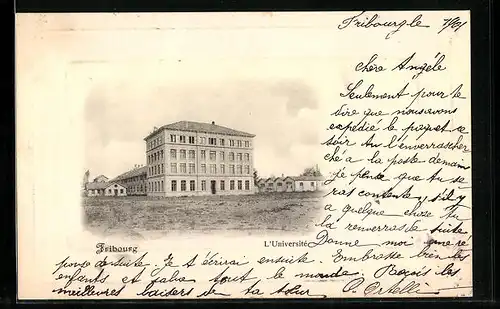 Fribourg le 7/01
Chère Angèle
Seulement pour te
dire que nous avons
expédié le paquet ce
soir tu l'enverras cher
ché a la poste demain
je pense que tu se
ras contente, s'il y
a quelque chose tu
la renverras de suite
Fribourg
L'Université
Donne moi une ré
ponse de suite. Je t'écrirai ensuite. Embrasse bien les
enfants et salue tout le monde. Reçois les
meilleures baisers de ta sœur